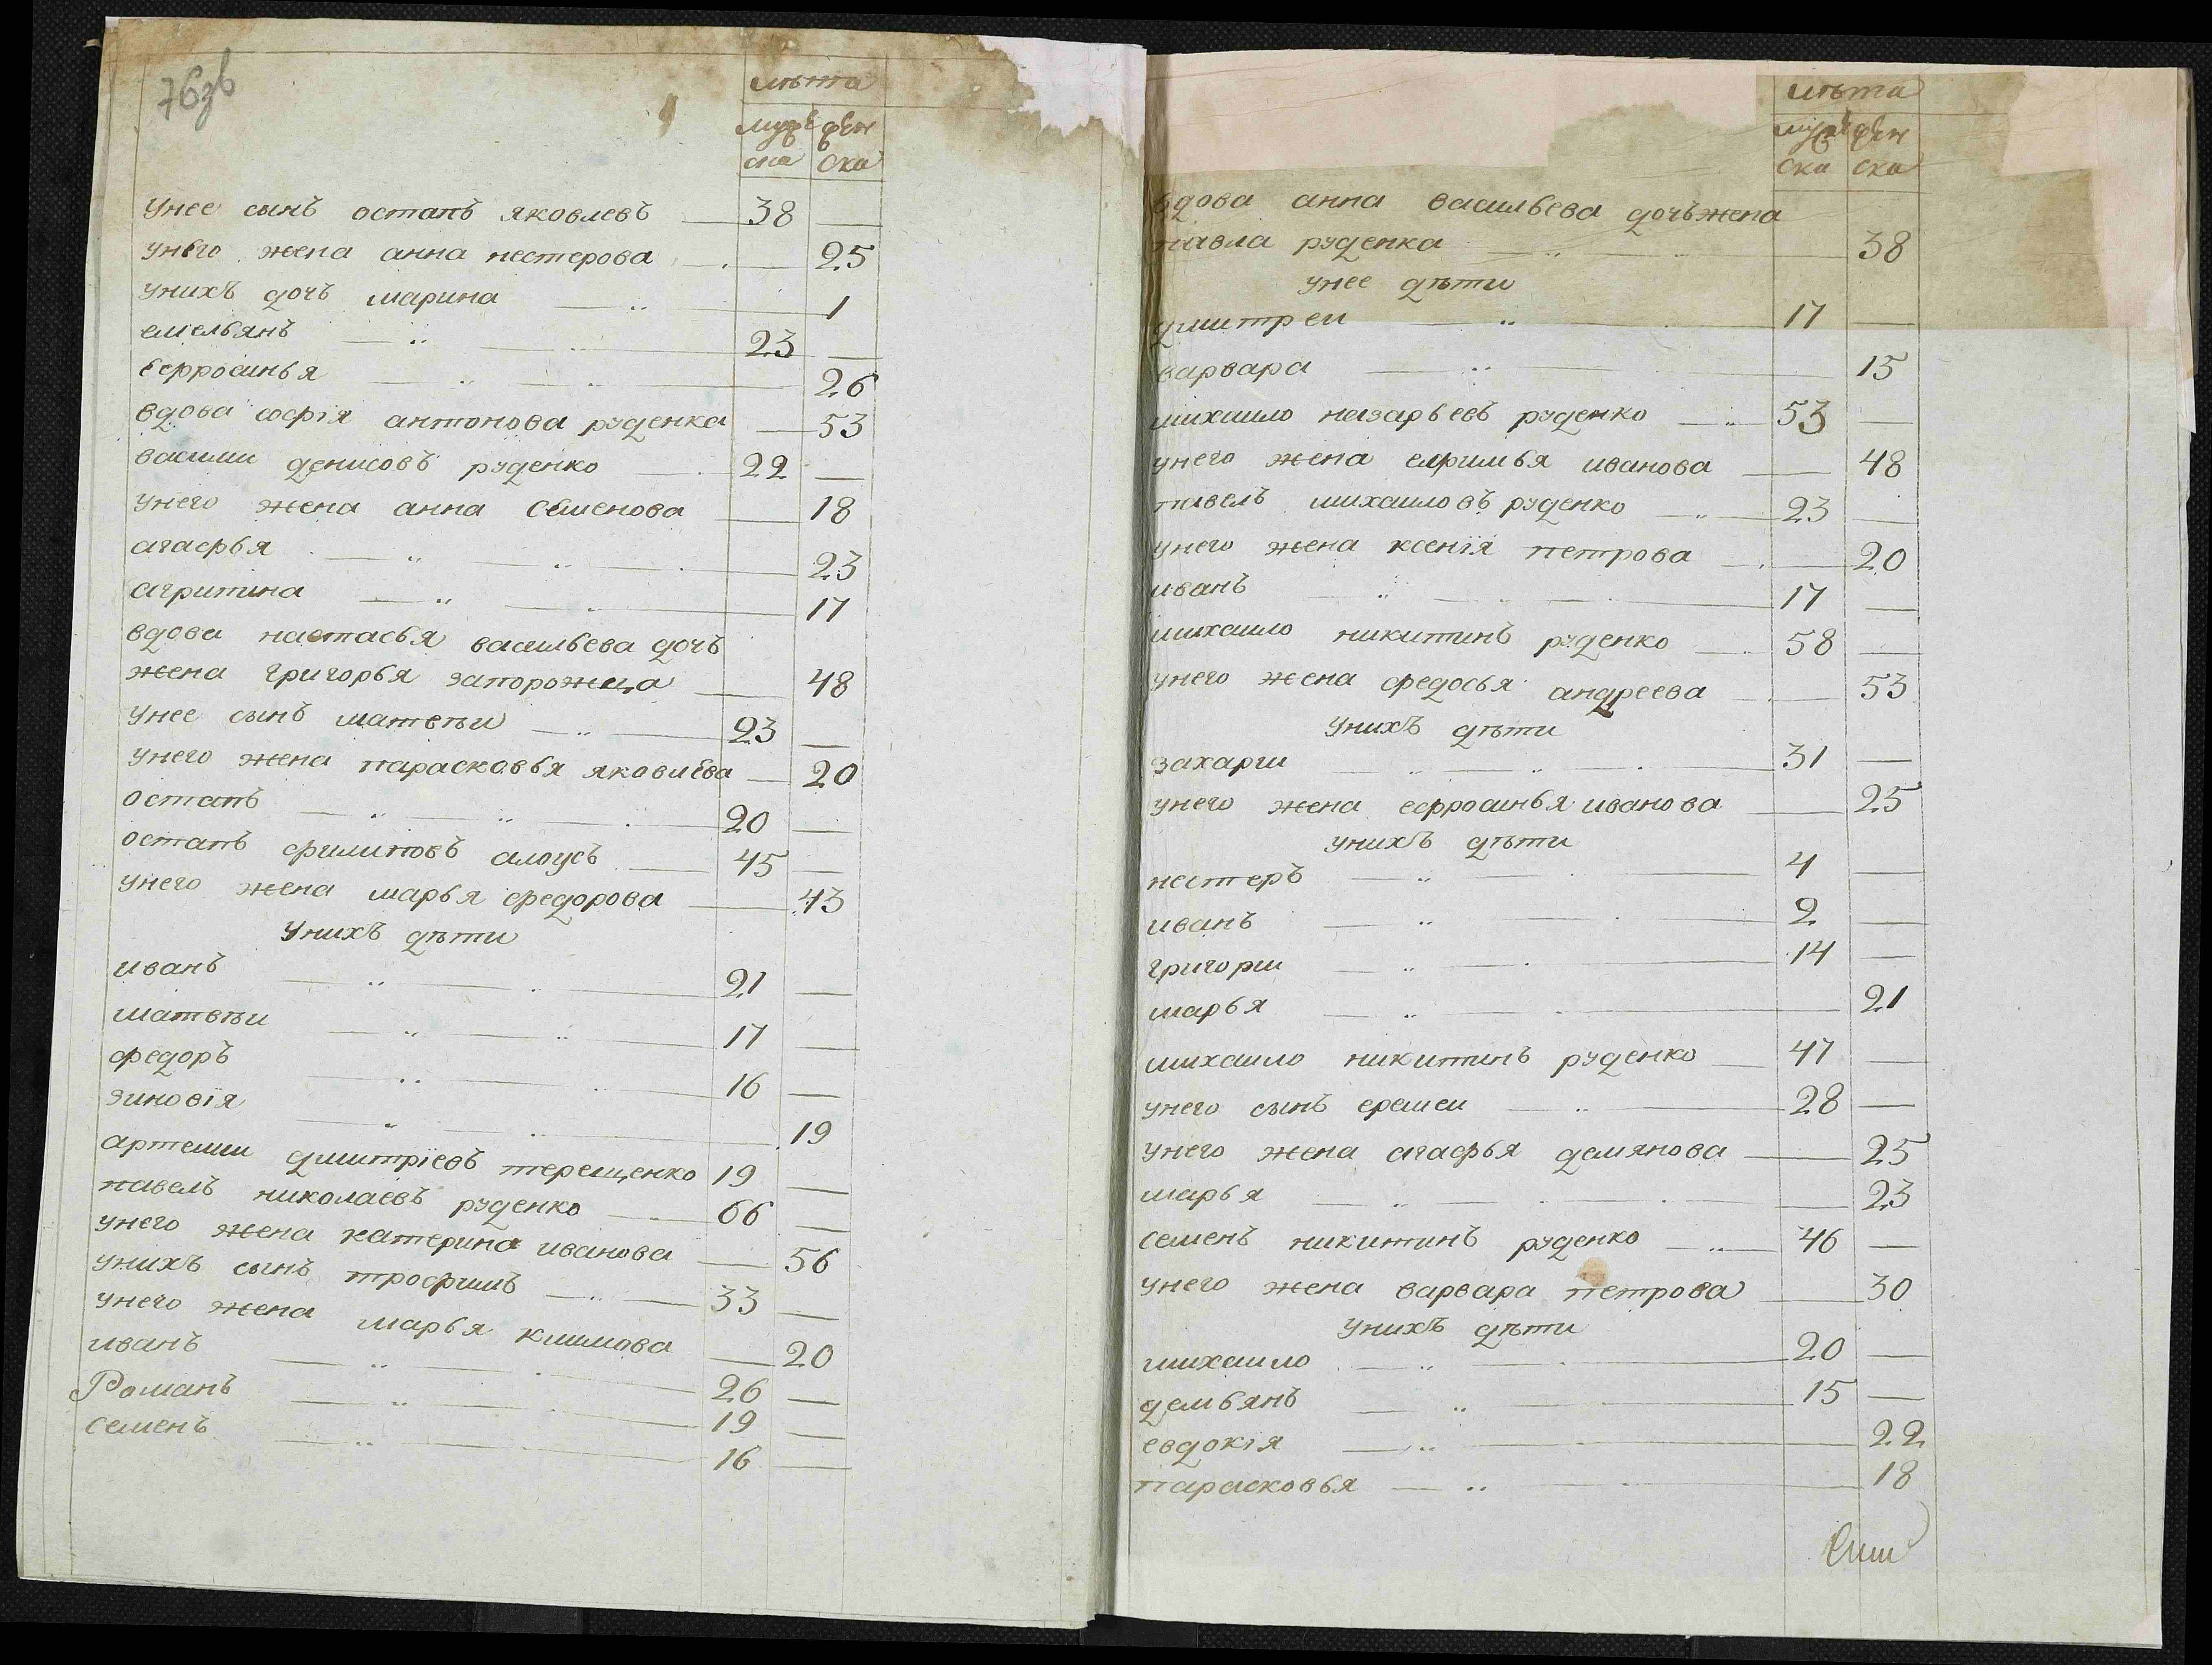 76зв
лѣта
мужеска женска
унее сынъ остапъ яковлевъ 38 —
унего жена анна нестерова — 25
унихъ дочъ марина — 1
емельянъ 23 —
ефросинья — 26
вдова софія антонова руденка — 53
васили денисовъ руденко 22 —
унего жена анна семенова — 18
агафья — 23
агрипина — 17
вдова настасья васильева дочъ
жена григорья запорожеца — 48
унее сынъ матвѣи 23 —
унего жена парасковья яковлева — 20
остапъ 20 —
остапъ филиповъ алоусъ 45 —
унего жена марья федорова — 43
унихъ дѣти
иванъ 21 —
матвѣи 17 —
федоръ 16 —
зиновія — 19
артеми дмитріевъ терещенко 19 —
павелъ николаевъ руденко 66 —
унего жена катерина иванова — 56
унихъ сынъ трофимъ 33 —
унего жена марья климова — 20
иванъ 26 —
Романъ 19 —
семенъ 16 —
лѣта
мужеска женска
вдова анна васильева дочъ жена
павла руденка — 38
унее дѣти
дмитреи 17 —
варвара — 15
михаило назарьевъ руденко 53 —
унего жена ефимья иванова — 48
павелъ михаиловъ руденко 23 —
унего жена ксенія петрова — 20
иванъ 17 —
михаило никитинъ руденко 58 —
унего жена федосья андреева — 53
унихъ дѣти
захари 31 —
унего жена ефросинья иванова — 25
унихъ дѣти
нестеръ 4 —
иванъ 2 —
григори 14 —
марья — 21
михаило никитинъ руденко 47 —
унего сынъ еремеи 28 —
унего жена агафья демянова — 25
марья — 23
семенъ никитинъ руденко 46 —
унего жена варвара петрова — 30
унихъ дѣти
михаило 20 —
демьянъ 15 —
евдокія — 22
парасковья — 18